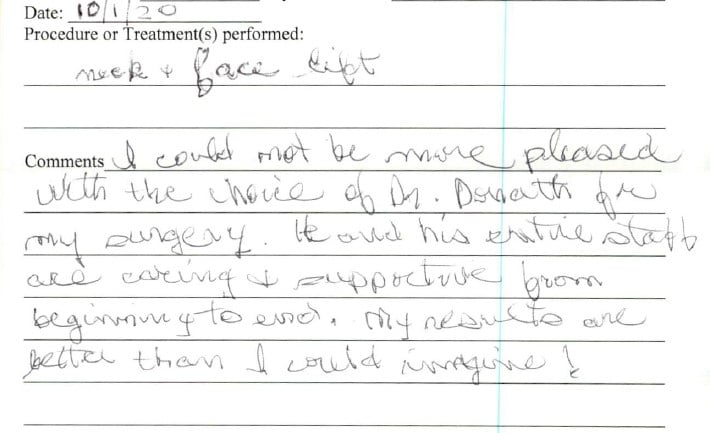 Date: 10/1/20
Procedure or Treatment(s) performed:
neck + face lift
Comments I could not be more pleased
with the choice of Dr. Donath for
my surgery. He and his entire staff
are caring & supportive from
beginning to end. My results are
better than I could imagine!